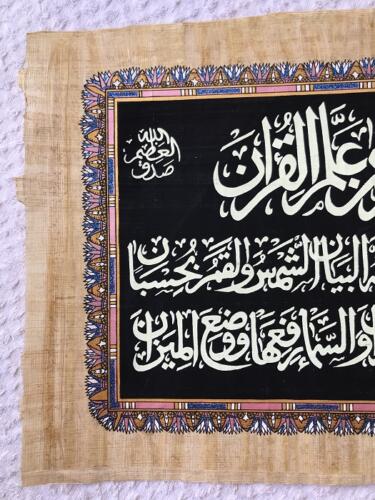 علم القرآن
البيان الشمس والقمر بحسبان
والسماء رفعها ووضع الميزان
صدق
الله
العظيم